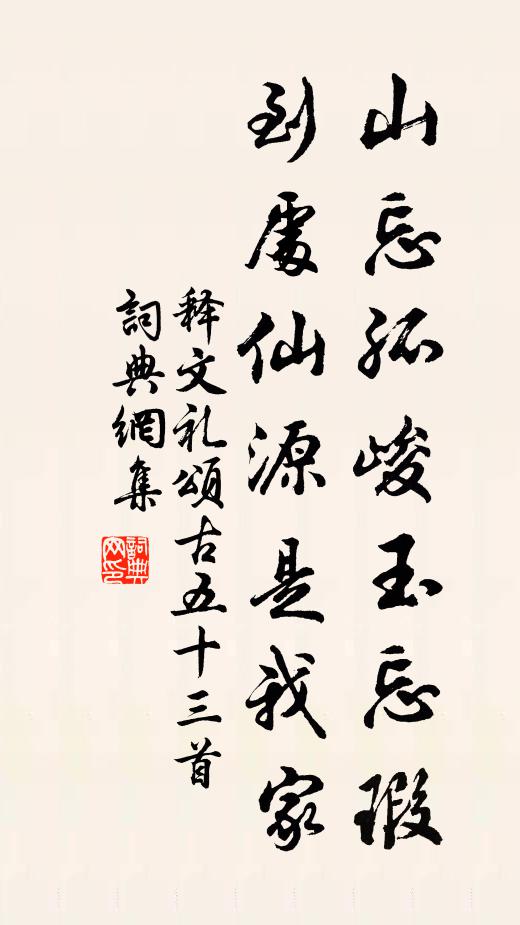 山忘孤峻玉忘瑕
到處仙源是我家
释文礼頌古五十三首
詞典網集
詞典网印